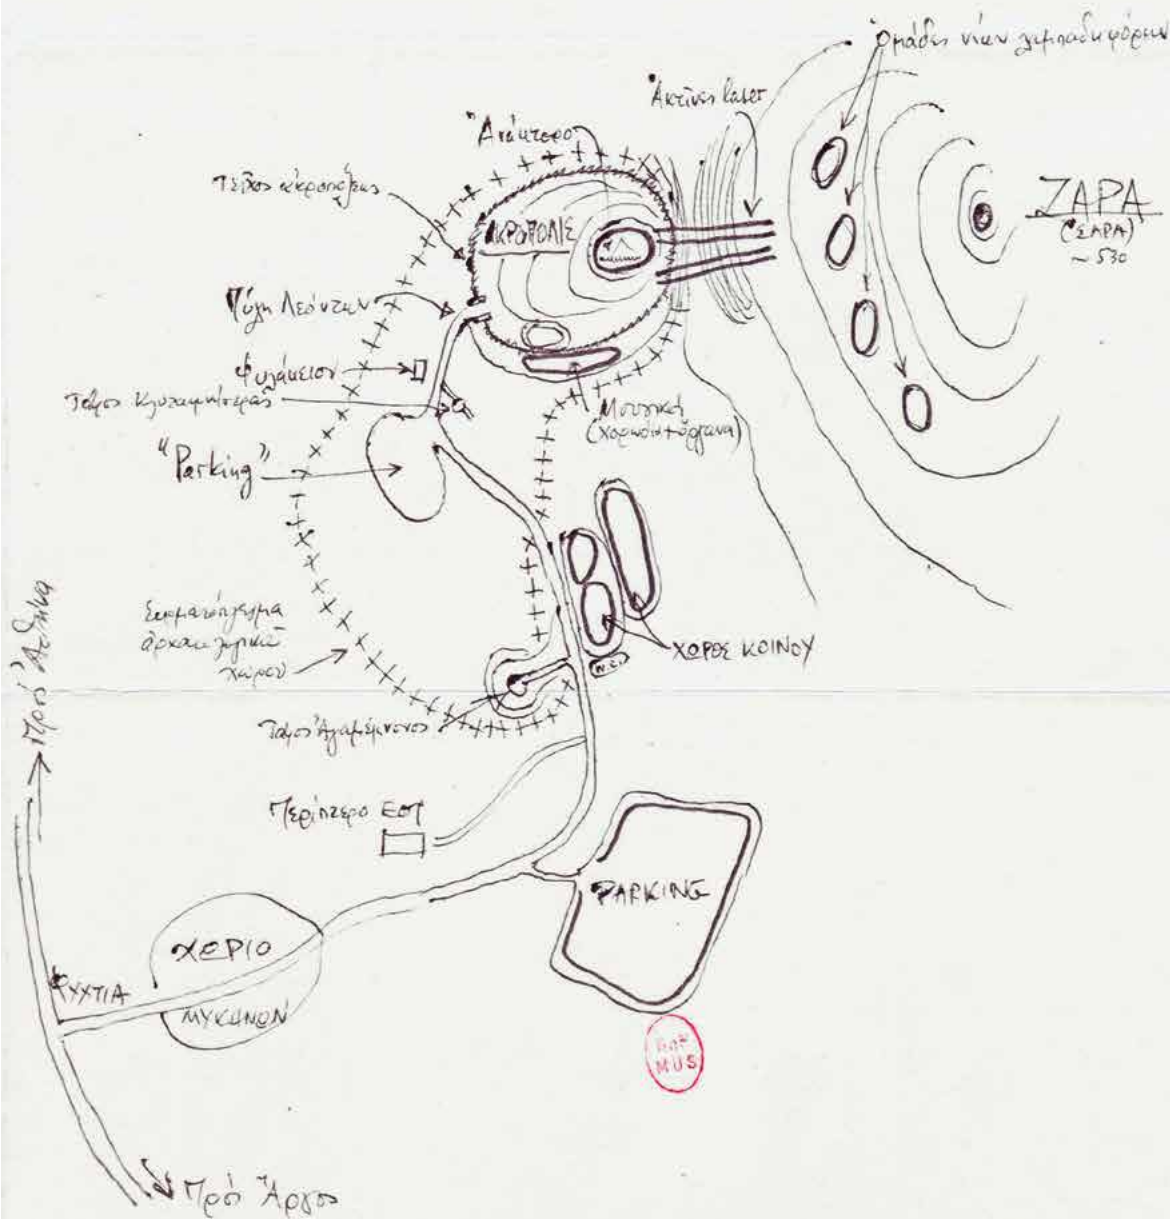 Ὁμάδες νέων λαμπαδηφόρων
Ἀκτῖνες laser
Ἀνάκτορο
Τεῖχος ἀκροπόλεως
ΑΚΡΟΠΟΛΙΣ
ΖΑΡΑ
(ΣΑΡΑ)
~ 530
Πύλη Λεόντων
Φυλάκειον
Τάφος Κλυταιμνήστρας
Μουσικοί
(χορωδία + ὄργανα)
"Parking"
Συρματόπλεγμα
ἀρχαιολογικοῦ
χώρου
ΧΩΡΟΣ ΚΟΙΝΟΥ
W.C.
Πρὸς Ἀθήνα
Τάφος Ἀγαμέμνονος
Περίπτερο ΕΟΤ
PARKING
ΧΩΡΙΟ
ΜΥΚΗΝΩΝ
ΦΥΧΤΙΑ
MUS
Πρὸς Ἄργος